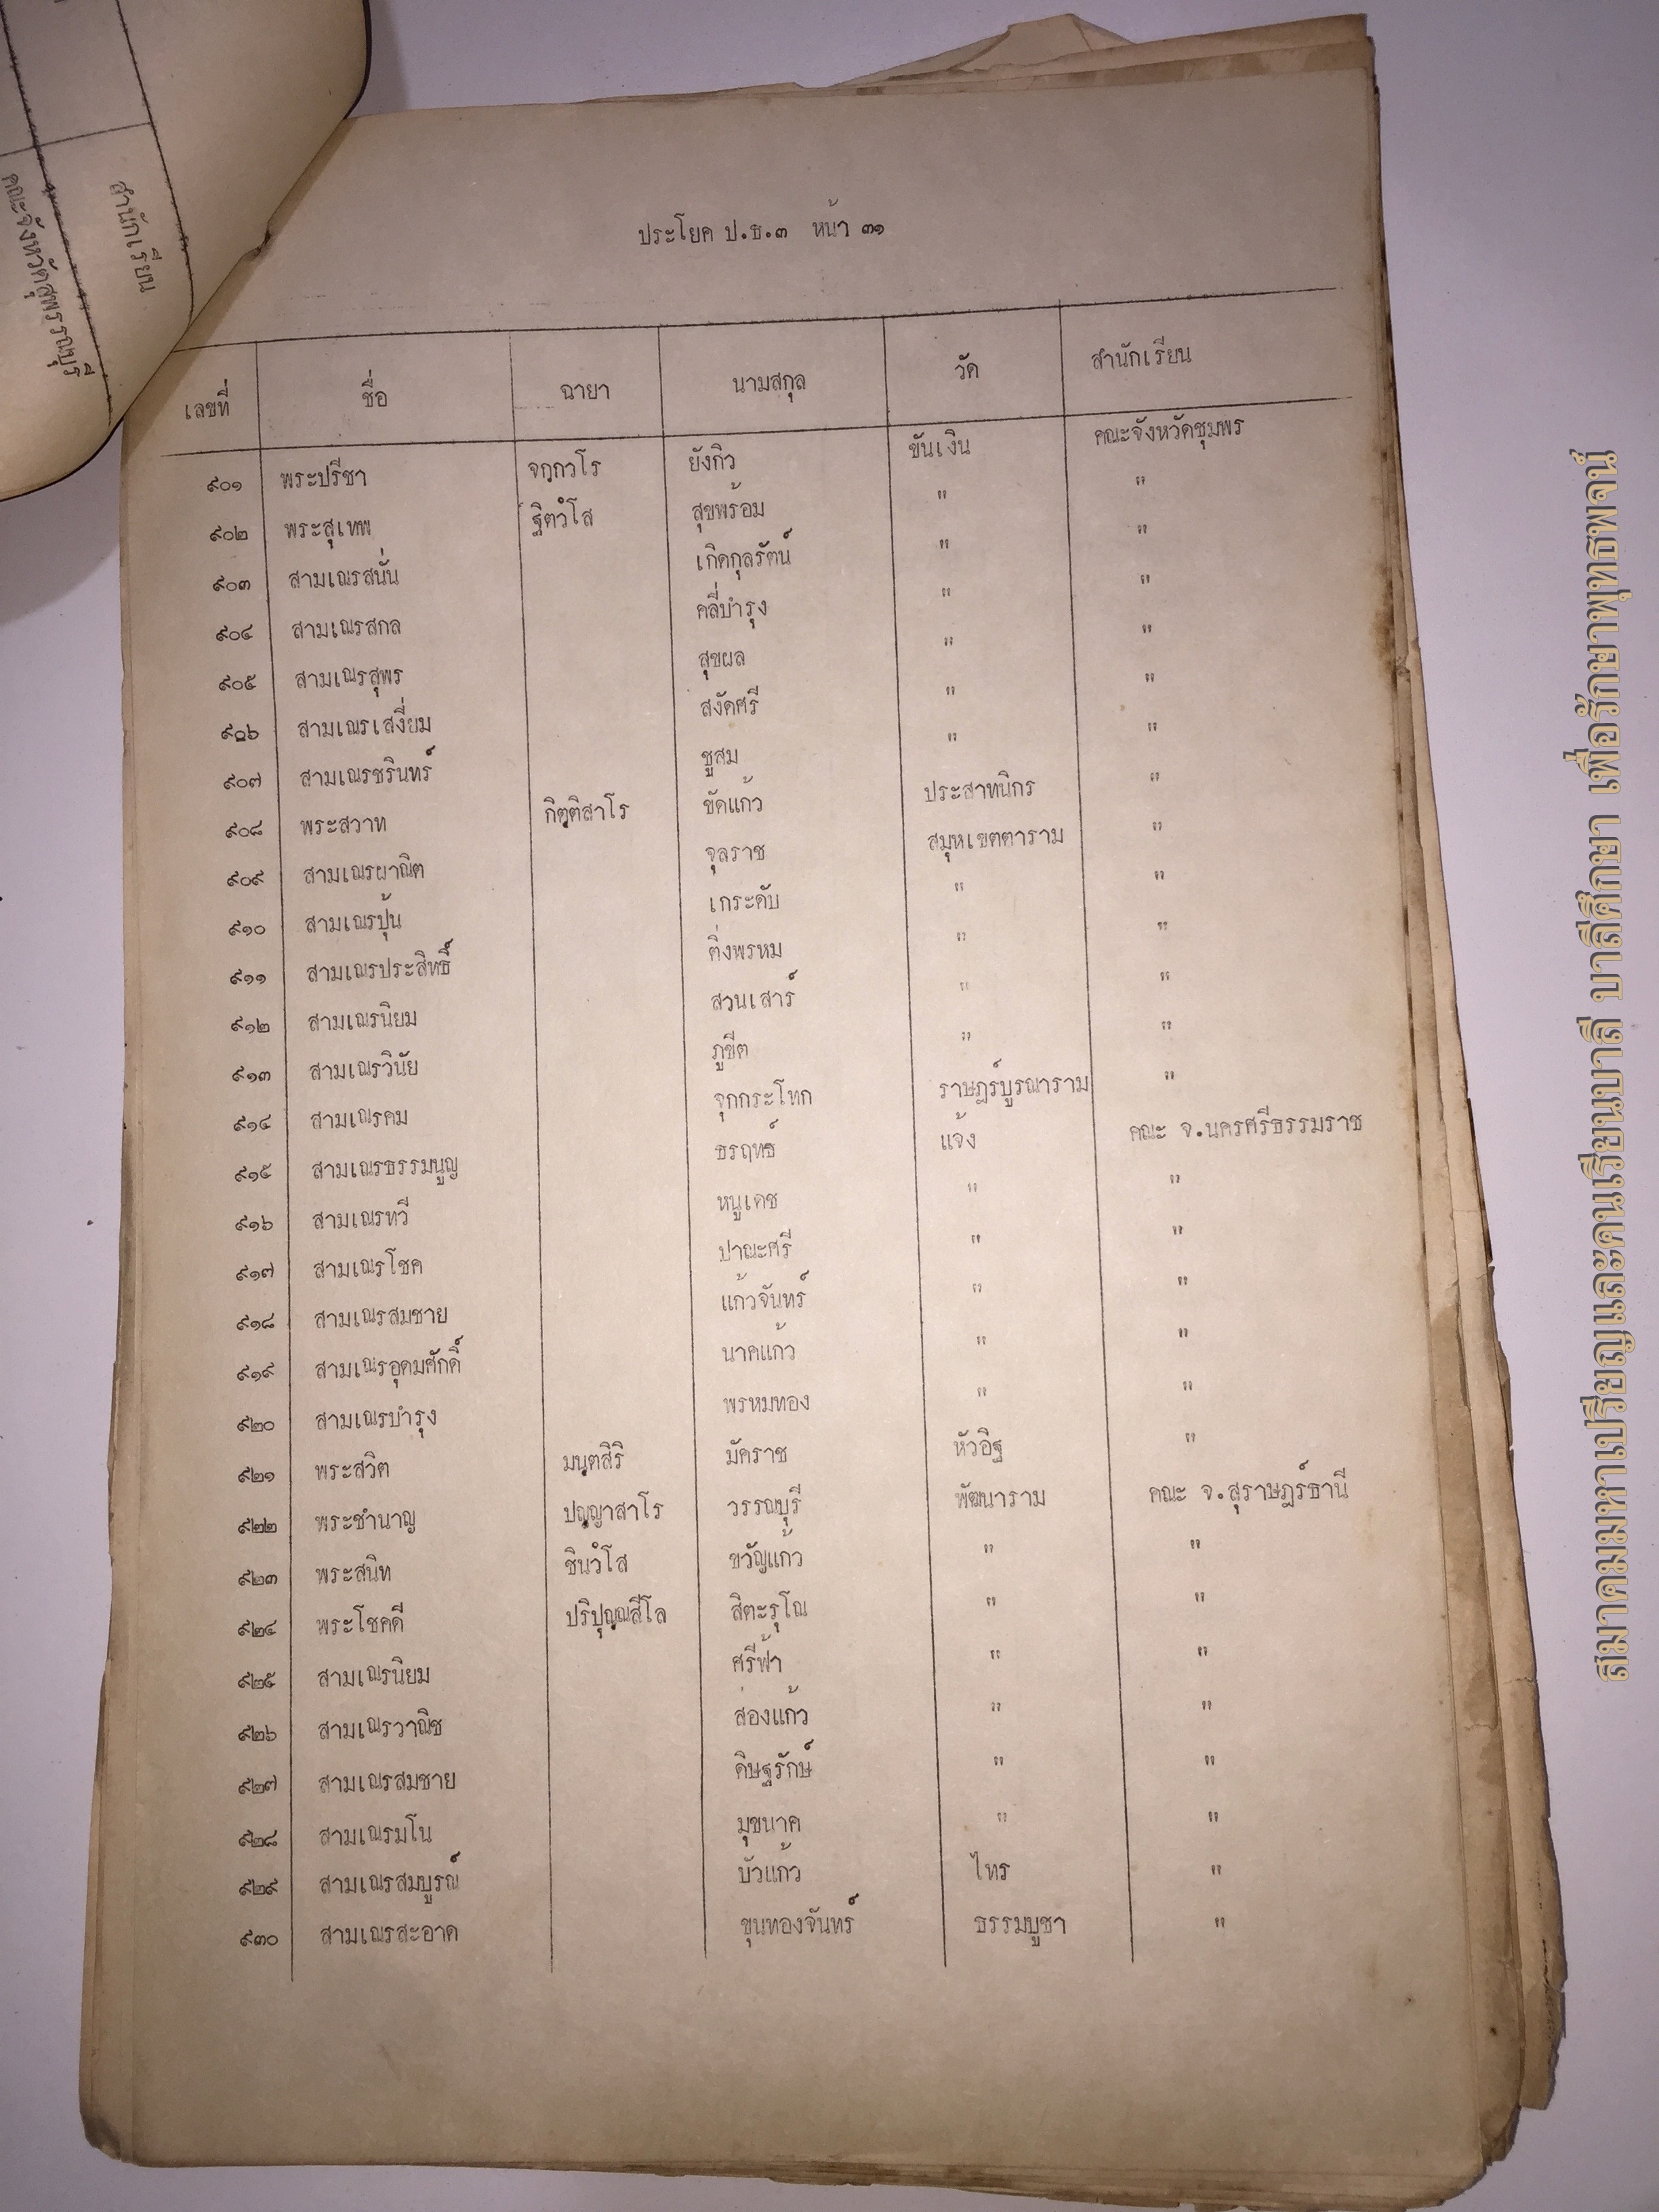 ประโยค ป.ธ.๓ หน้า ๓๑
เลขที่ ชื่อ ฉายา นามสกุล วัด สำนักเรียน
๙๐๑ พระปรีชา จกฺกวโร ยังกิว ขันเงิน คณะจังหวัดชุมพร
๙๐๒ พระสุเทพ ฐิตวํโส สุขพร้อม " "
๙๐๓ สามเณรสนั่น เกิดกุลรัตน์ " "
๙๐๔ สามเณรสกล คลี่บำรุง " "
๙๐๕ สามเณรสุพร สุขผล " "
๙๐๖ สามเณรเสงี่ยม สงัดศรี " "
๙๐๗ สามเณรชรินทร์ ชูสม " "
๙๐๘ พระสวาท กิตฺติสาโร ขัดแก้ว ประสาทนิกร "
๙๐๙ สามเณรผาณิต จุลราช สมุหเขตตาราม "
๙๑๐ สามเณรปุ้น เกระดับ " "
๙๑๑ สามเณรประสิทธิ์ ติ่งพรหม " "
๙๑๒ สามเณรนิยม สวนเสาร์ " "
๙๑๓ สามเณรวินัย ภูขีต " "
๙๑๔ สามเณรคม จุกกระโทก ราษฎร์บูรณาราม "
๙๑๕ สามเณรธรรมนูญ ธรฤทธ์ แจ้ง คณะ จ.นครศรีธรรมราช
๙๑๖ สามเณรทวี หนูเดช " "
๙๑๗ สามเณรโชค ปาณะศรี " "
๙๑๘ สามเณรสมชาย แก้วจันทร์ " "
๙๑๙ สามเณรอุดมศักดิ์ นาคแก้ว " "
๙๒๐ สามเณรบำรุง พรหมทอง " "
๙๒๑ พระสวิต มนฺตสิริ มัคราช หัวอิฐ "
๙๒๒ พระชำนาญ ปญฺญาสาโร วรรณบุรี พัฒนาราม คณะ จ.สุราษฎร์ธานี
๙๒๓ พระสนิท ชินวํโส ขวัญแก้ว " "
๙๒๔ พระโชคดี ปริปุณฺณสีโล สิตะรุโณ " "
๙๒๕ สามเณรนิยม ศรีฟ้า " "
๙๒๖ สามเณรวาณิช ส่องแก้ว " "
๙๒๗ สามเณรสมชาย ดิษฐรักษ์ " "
๙๒๘ สามเณรมโน มุขนาค " "
๙๒๙ สามเณรสมบูรณ์ บัวแก้ว ไทร "
๙๓๐ สามเณรสะอาด ขุนทองจันทร์ ธรรมบูชา "
สำนักเรียน
คณะจังหวัดสุพรรณบุรี
สมาคมมหาเปรียญและคนเรียนบาลี บาลีศึกษา เพื่อรักษาพุทธพจน์